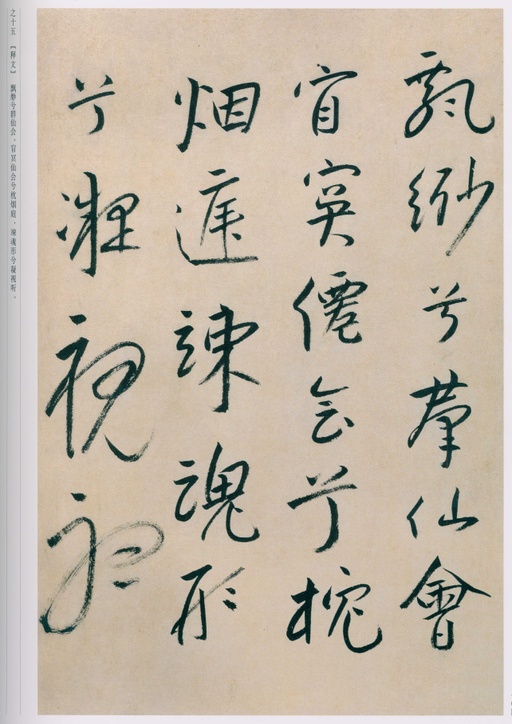 飄緲兮羣仙會
窅冥僊会兮枕
烟庭竦魂形
兮凝視聽
之十五 【释文】 飘缈兮群仙会，窅冥仙会兮枕烟庭，竦魂形兮凝视听。